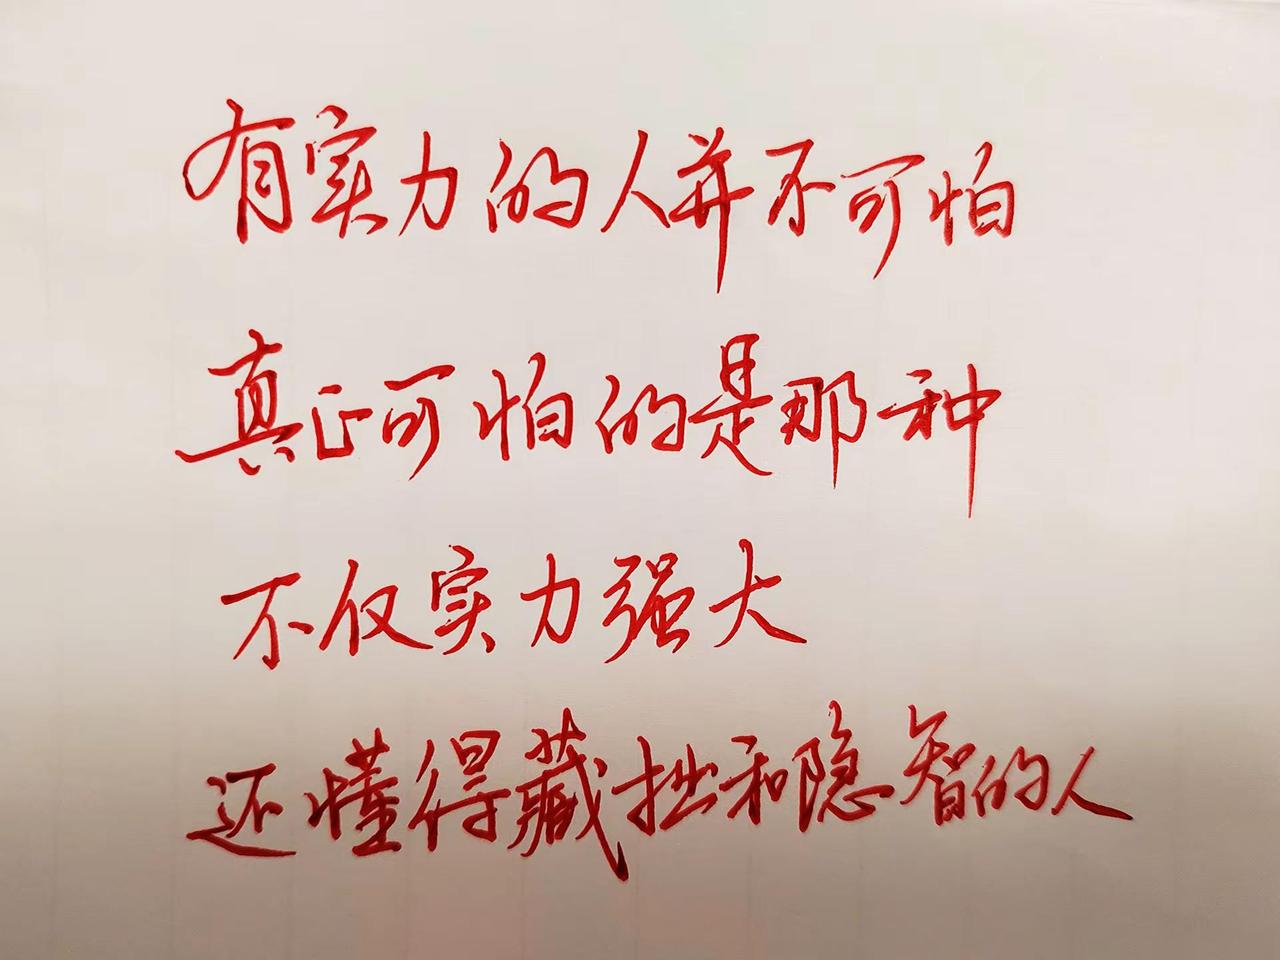 有实力的人并不可怕
真正可怕的是那种
不仅实力强大
还懂得藏拙和隐智的人